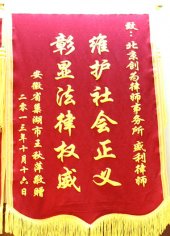 致：北京创为律师事务所 盛利律师
维护社会正义
彰显法律权威
安徽省巢湖市王秋萍敬赠
二零一三年十月十六日